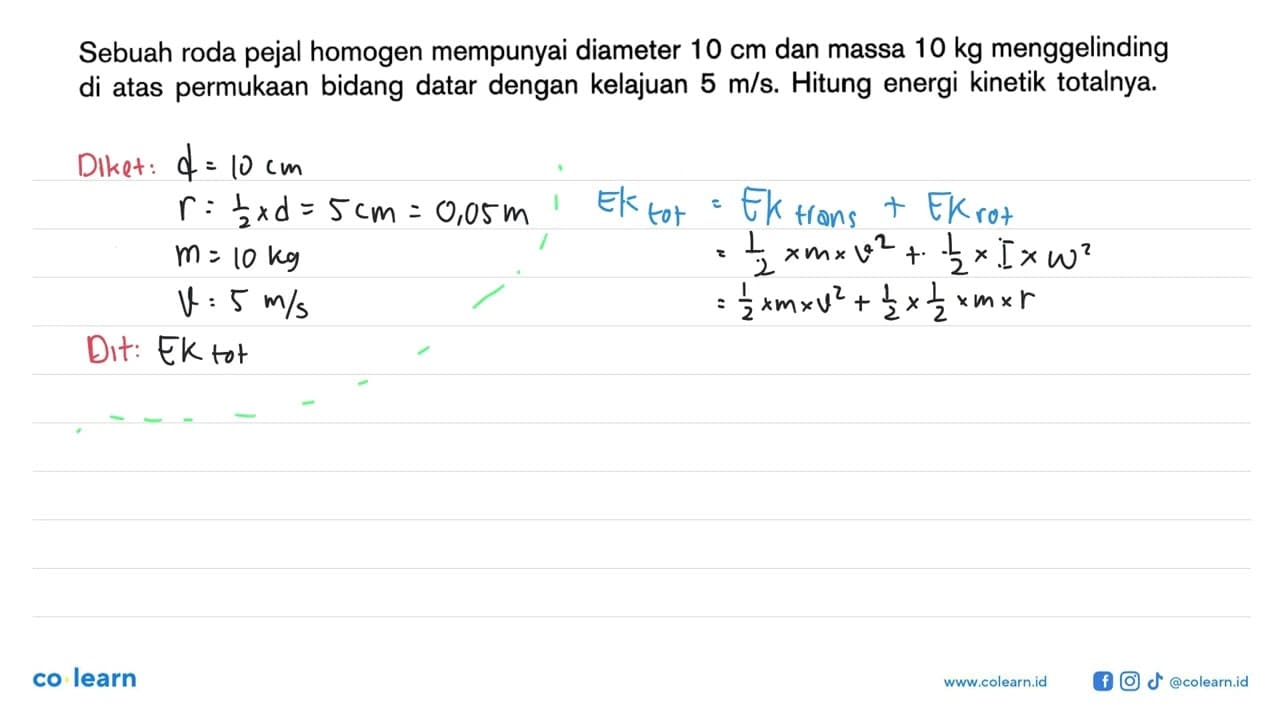 Sebuah roda pejal homogen mempunyai diameter 10 cm dan massa 10 kg menggelinding
di atas permukaan bidang datar dengan kelajuan 5 m/s. Hitung energi kinetik totalnya.
Diket: d = 10 cm
r = 1/2 x d = 5 cm = 0,05 m
m = 10 kg
v = 5 m/s
Dit: EK tot
Ek tot = Ek trans + EK rot
= 1/2 x m x v² + 1/2 x I x w²
= 1/2 x m x v² + 1/2 x 1/2 x m x r
co learn
www.colearn.id
@colearn.id